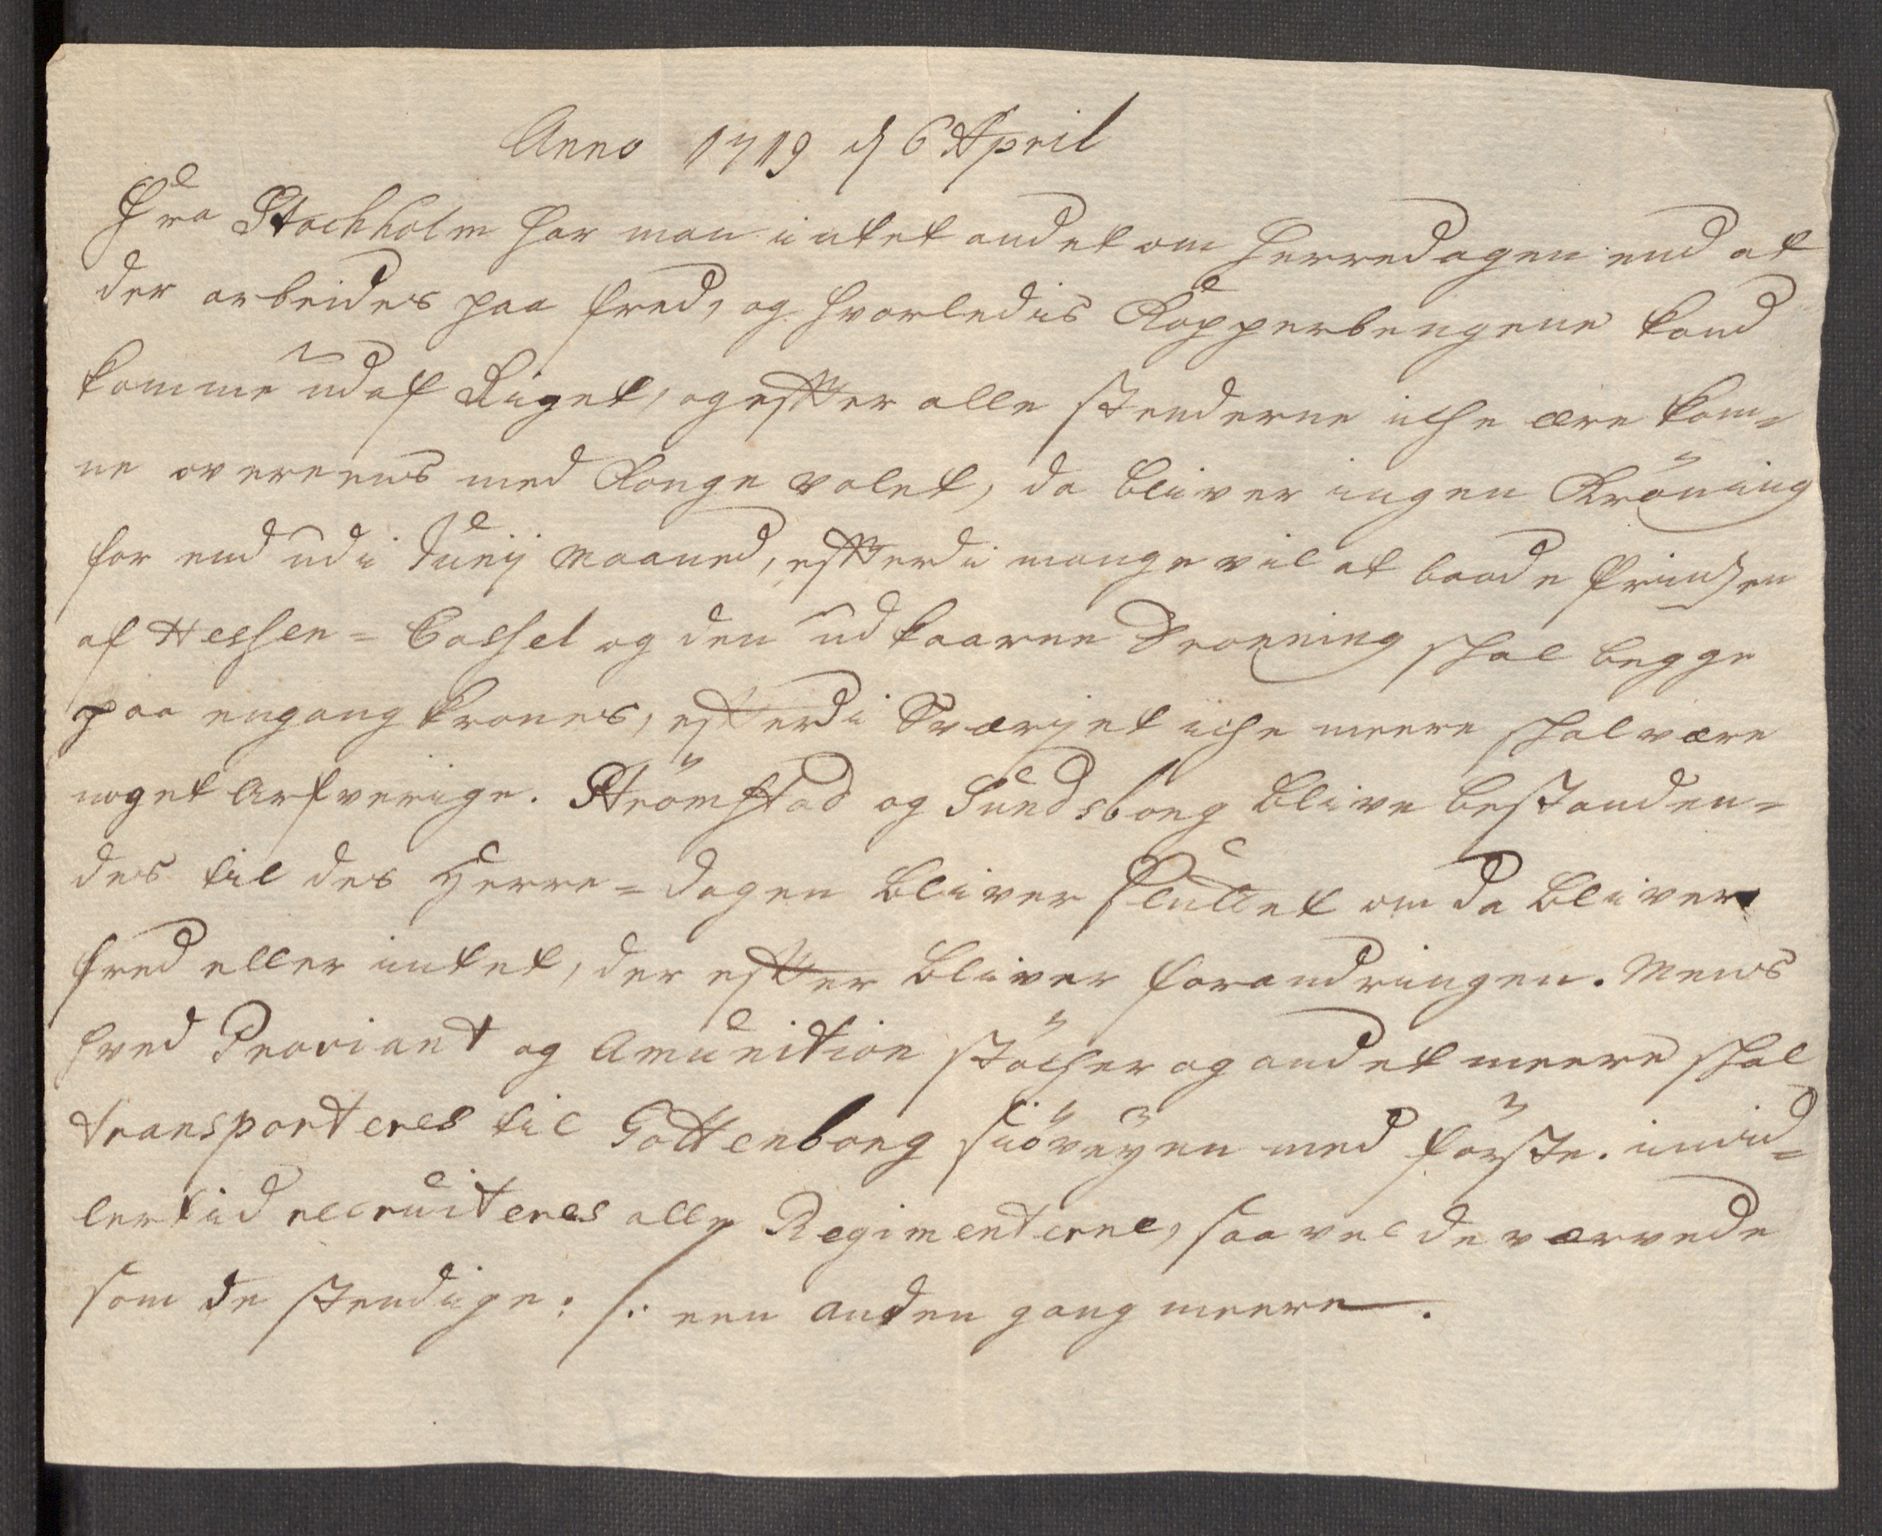 Anno 1719 d 6 April
Fra Stockholm har man intet andet om herredagen end at
der arbeides paa fred, og hvorledis Kopperbengene kand
komme ud af Riget, og efter alle stenderne iche ere kom=
ne overeens med Konge valet, da bliver ingen Kröning
for end ud i Junij Maaned, efterdi mange vil at baade Prinsen
af Hessen=Cassel og den udkaarne Dronning skal begge
paa engang krones, efterdi Sværjet iche meere skal være
noget Arfverige. Strömstad og Sundsborg blive bestanden=
des til des Herre=dagen bliver sluttet om da bliver
fred eller intet, der efter bliver forandringen. Mens
hved Proviant og Amunition stöcher og andet meere skal
transporteres til Gottenborg siöveyen med förste. imid=
lertid recruiteres alle Regimenterne, saa vel de værvede
som de stendige: /: een anden gang meere.